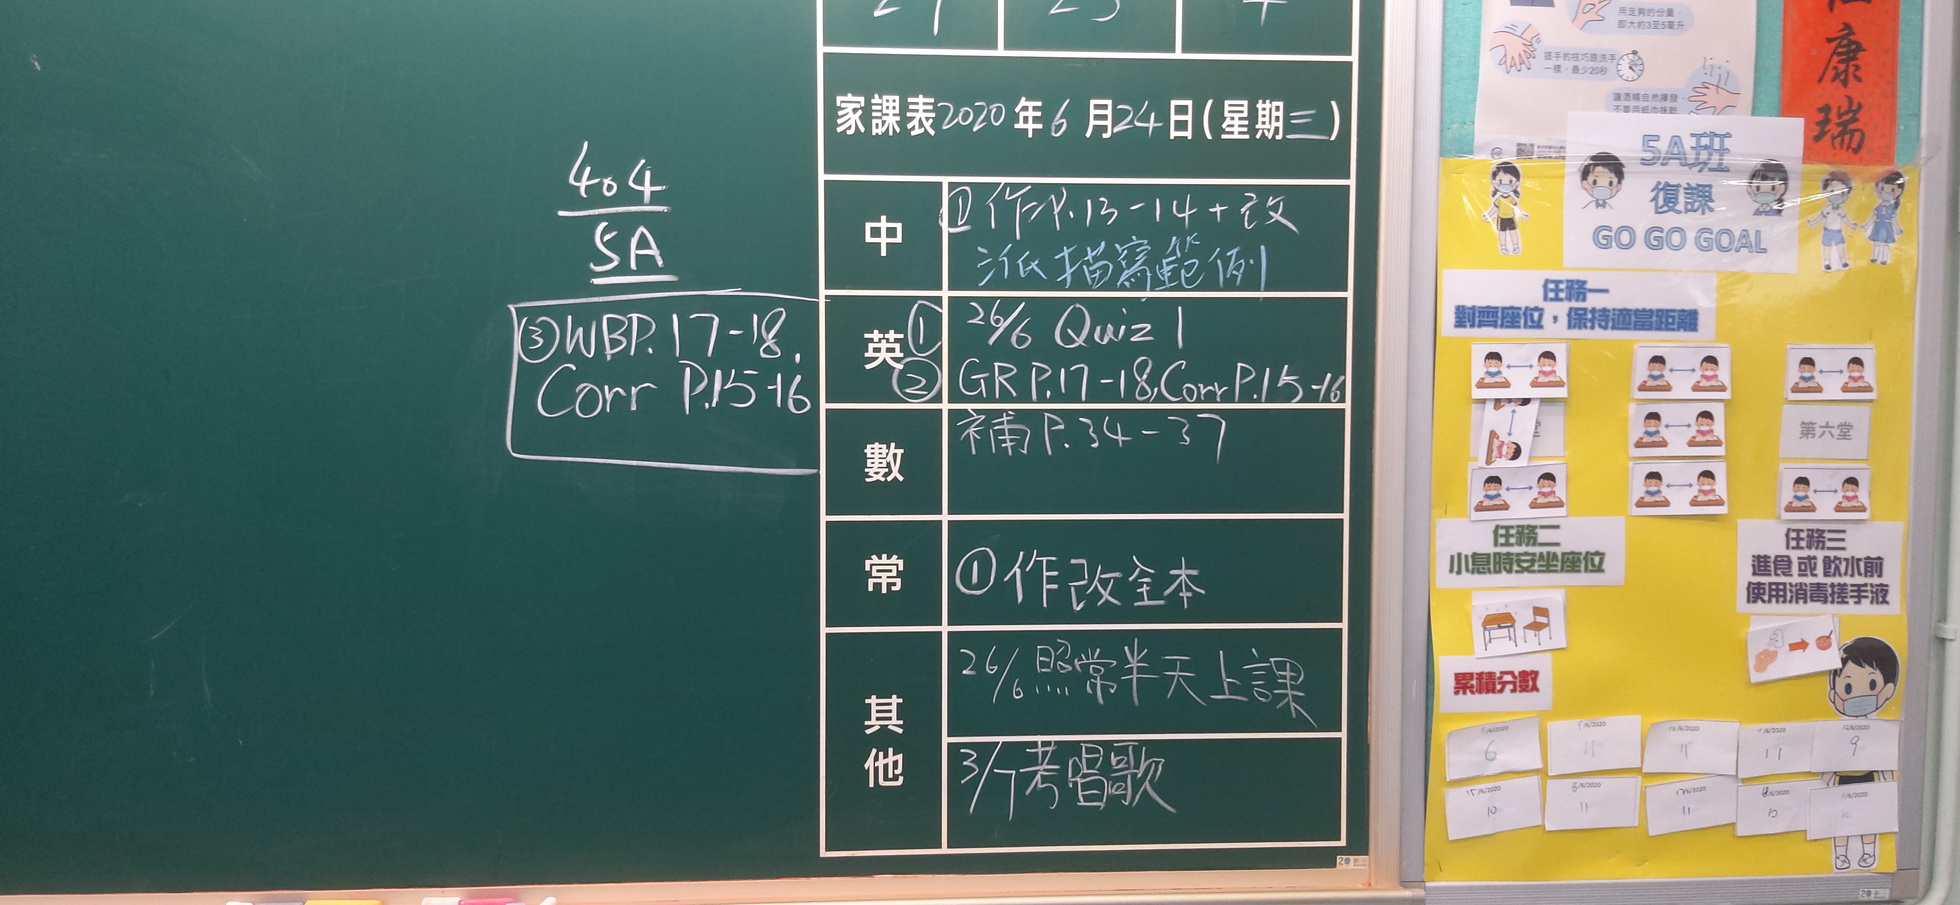 家課表2020年6月24日(星期三)
404
5A
中
①作P.13-14+改
派描寫範例
英
① 26/6 Quiz 1
② GR P.17-18, Corr P.15-16
③WBP.17-18,
Corr P.15-16
數
補P.34-37
常
①作改全本
其他
26/6照常半天上課
3/7考唱歌
用足夠的份量,
即大約3至5毫升
搓手的技巧跟洗手
一樣,最少20秒
讓酒精自然揮發,
康瑞
5A班
復課
GO GO GOAL
任務一
對齊座位,保持適當距離
第六堂
任務二
小息時安坐座位
任務三
進食或飲水前
使用消毒搓手液
累積分數
6
11
11
11
9
15/6/2020
10
11
11
10